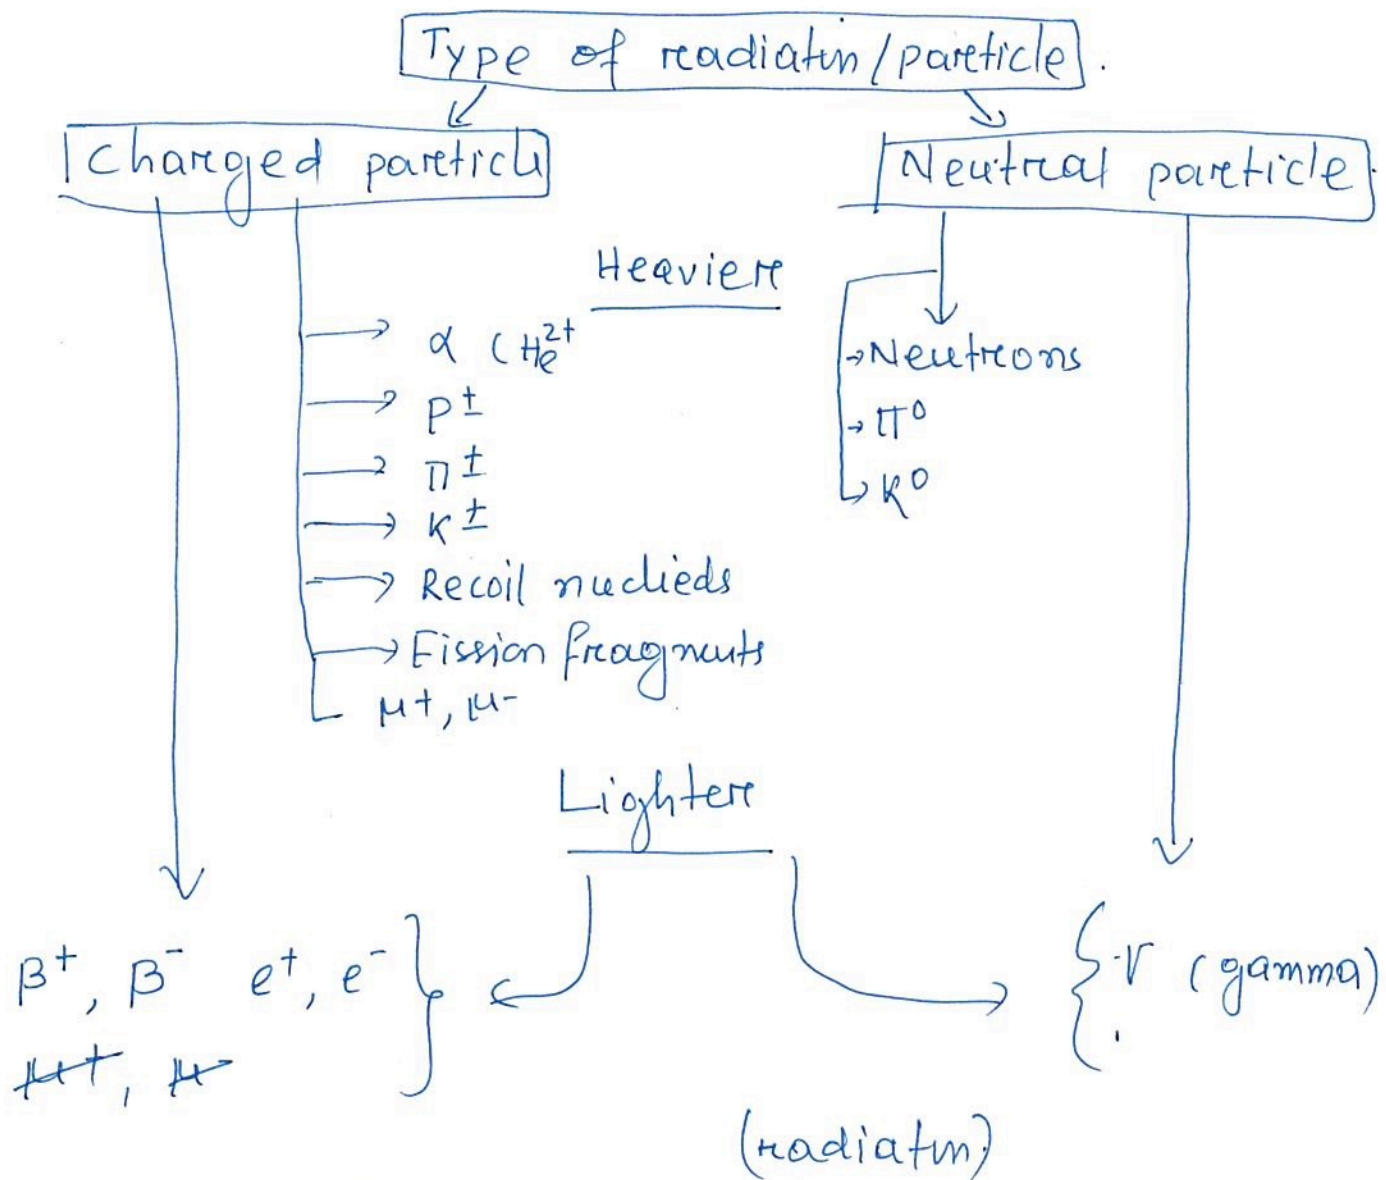 Type of readiatin/pareticle.
Charged pareticu
Neutral pareticle
Heaviere
α (He2+
P±
π±
K±
Recoil nuclieds
Fission fragments
μ+, μ-
→Neutrons
→π0
K0
Lightere
β+, β- e+, e-
μ+, μ
γ (gamma)
(radiatin)